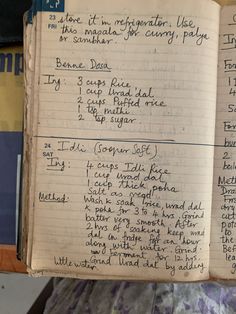 23 store it in refrigerator. Use
FRI this masala for curry, palya
or sambhar.
Benne Dosa
Ing: 3 cups Rice
1 cup Urad dal
2 cups Puffed rice
1 tsp methi
2 tsp sugar
24 Idli (sooper soft)
SAT
Ing: 4 cups Idli Rice
1 cup urad dal
1 cup thick poha
Salt as reqd.
Method: Wash & soak rice, urad dal
& poha for 3 to 4 hrs. Grind
batter very smooth. After
2 hrs of soaking keep urad
dal in fridge for an hour
along with water. Grind
now ferment for 12 hrs.
Grind urad dal by adding
little water